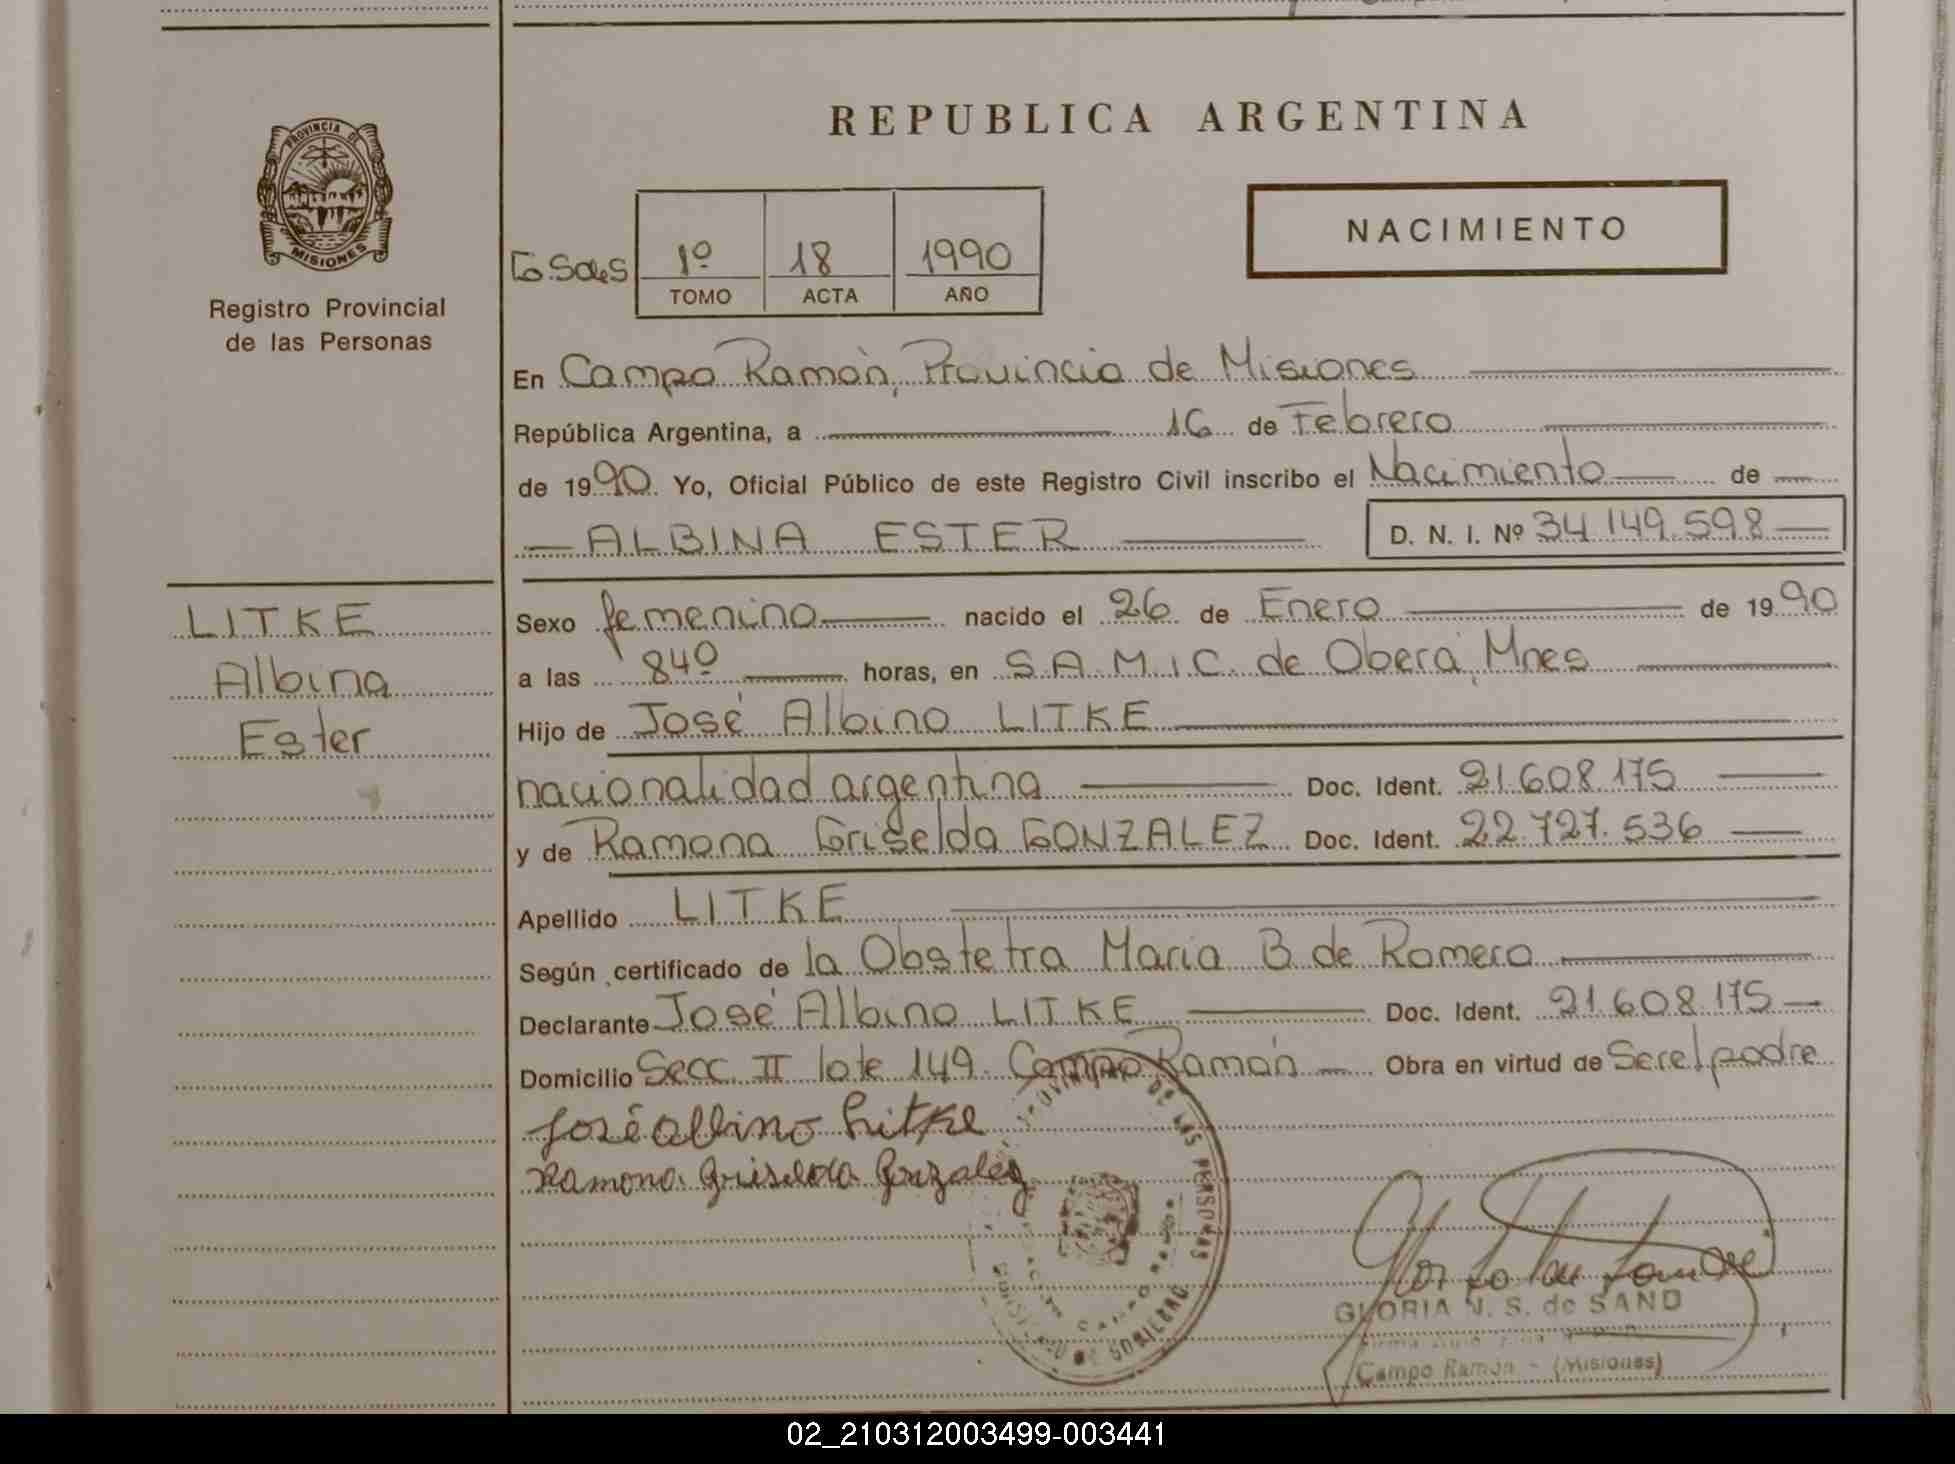 REPUBLICA ARGENTINA
PROVINCIA DE
MISIONES
Registro Provincial
de las Personas
NACIMIENTO
1º 18 1990
TOMO ACTA AÑO
En Campo Ramón, Provincia de Misiones
República Argentina, a 16 de Febrero
de 1990. Yo, Oficial Público de este Registro Civil inscribo el Nacimiento de
ALBINA ESTER D. N. I. Nº 34.149.598
LITKE
Albina
Ester
Sexo femenino nacido el 26 de Enero de 1990
a las 840 horas, en S.A.M.I.C. de Oberá, Mnes
Hijo de José Albino LITKE
nacionalidad argentina Doc. Ident. 21.608.175
y de Ramona Griselda GONZALEZ Doc. Ident. 22.727.536
Apellido LITKE
Según certificado de la Obstetra Maria B de Romero
Declarante José Albino LITKE Doc. Ident. 21.608.175
Domicilio Secc. II lote 149. Campo Ramón Obra en virtud de Ser el padre
José Albino Litke
Ramona Griselda Gonzalez
DE LAS PERSONAS
GLORIA N. S. de SAND
Campo Ramón - (Misiones)
02_210312003499-003441